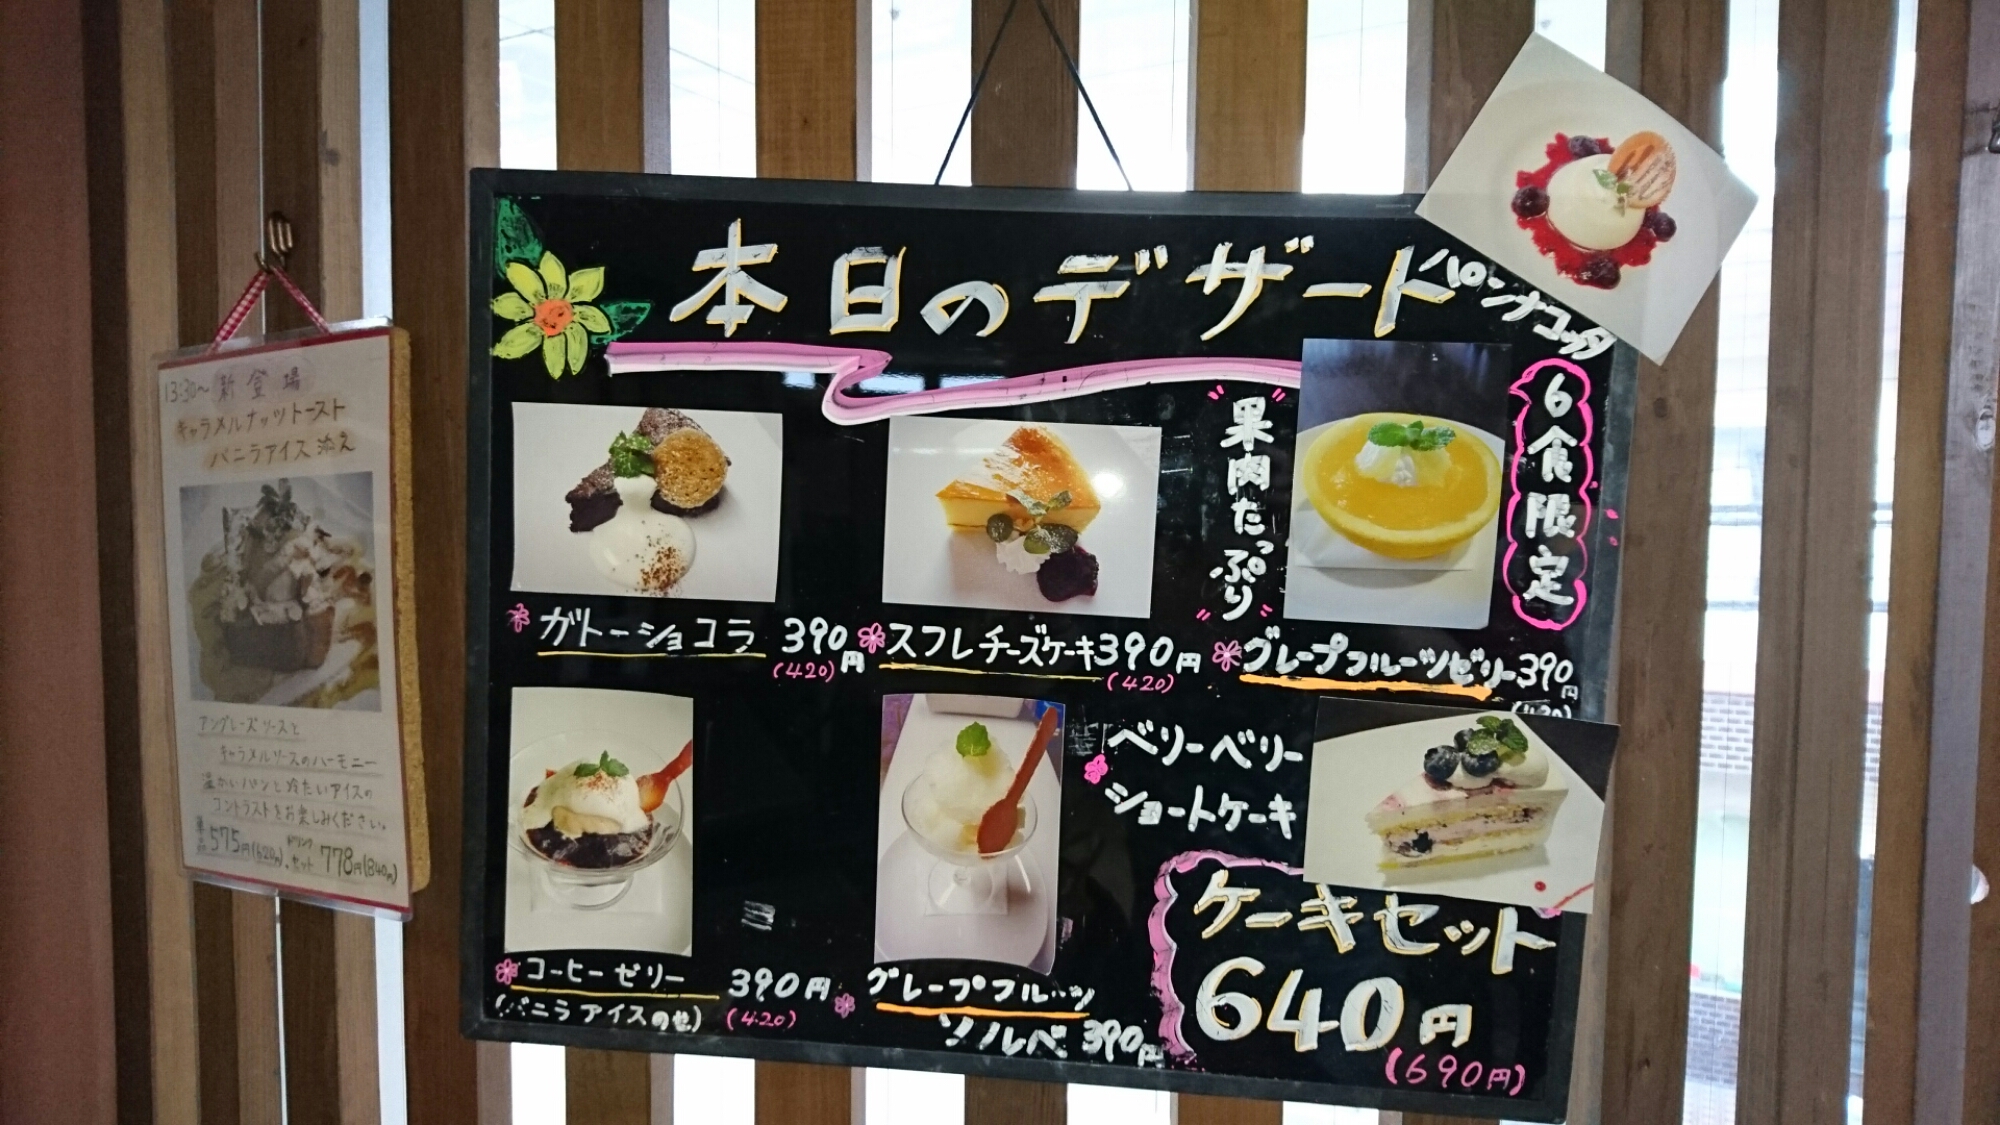 13:30〜新登場
キャラメルナッツトースト
バニラアイス添え
アングレーズソースと
キャラメルソースのハーモニー
温かいパンと冷たいアイスの
コントラストをお楽しみください。
単品 575円(620円)、ドリンクセット 778円(840円)
本日のデザート
パンナコッタ
6食限定
"果肉たっぷり"
ガトーショコラ 390円
(420)
スフレチーズケーキ390円
(420)
グレープフルーツゼリー390円
(420)
コーヒーゼリー 390円
(バニラアイスのせ) (420)
グレープフルーツ
ソルベ 390円
ベリーベリー
ショートケーキ
ケーキセット
640円
(690円)